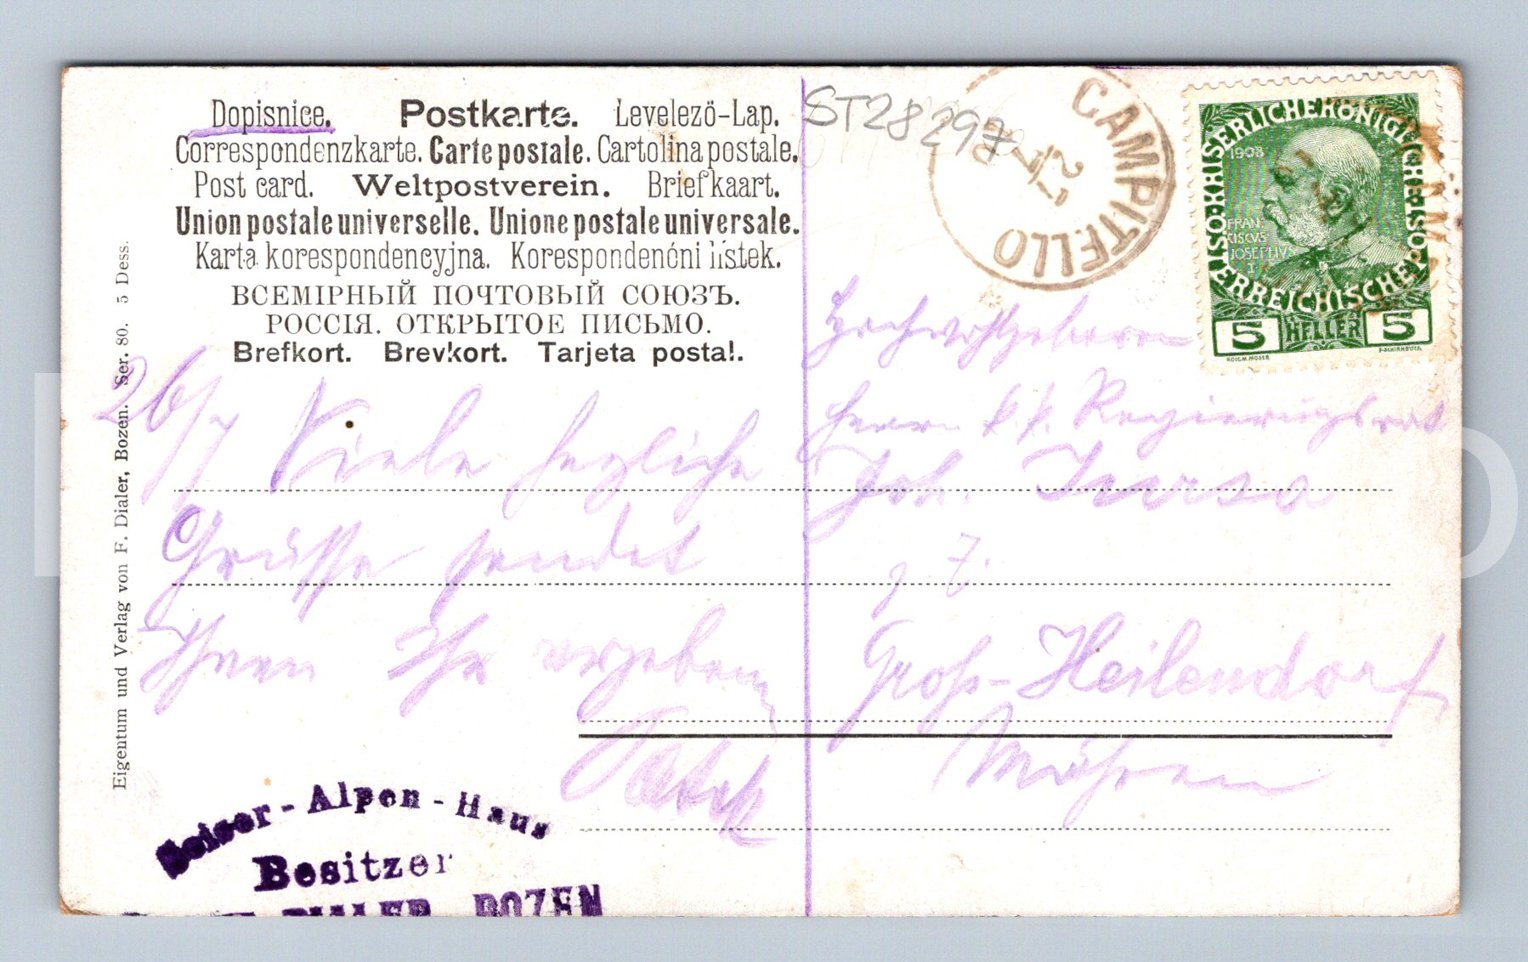 Dopisnice. Postkarte. Levelező-Lap.
Correspondenzkarte. Carte postale. Cartolina postale.
Post card. Weltpostverein. Briefkaart.
Union postale universelle. Unione postale universale.
Karta korespondencyjna. Korespondenčni listek.
ВСЕМІРНЫЙ ПОЧТОВЫЙ СОЮЗЪ.
РОССІЯ. ОТКРЫТОЕ ПИСЬМО.
Brefkort. Brevkort. Tarjeta postal.
Eigentum und Verlag von F. Dialer, Bozen. Ser. 80. 5 Dess.
ST28297
CAMPITELLO
1908
FRAN
CISCVS
JOSEPH IV
I
KAISERLICHE KÖNIGLICHE
ÖSTERREICHISCHE POST
5 HELLER 5
26/7 Viele herzliche
Grüsse sendet
Ihnen Ihr ergebener
Hochwohlgeboren
Herrn k. k. Regierungsrat
Joh.
Groß-Heilendorf,
Mähren
Seiser-Alpen-Haus
Besitzer
DIALER, BOZEN